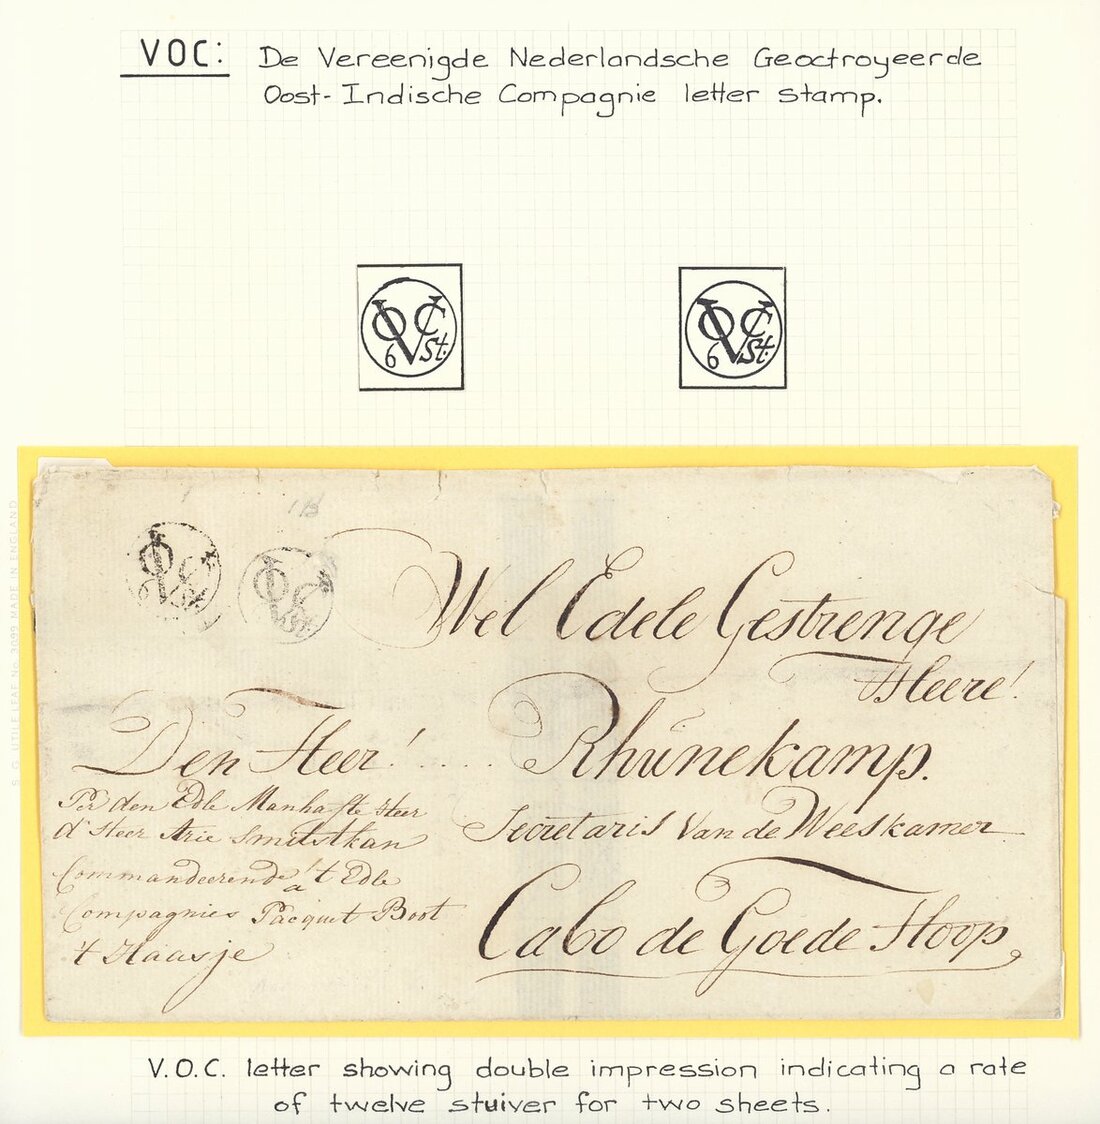 VOC: De Vereenigde Nederlandsche Geoctroyeerde
Oost-Indische Compagnie letter stamp.
VOC 6 St:
VOC 6 St:
VOC 6 St:
VOC 6 St:
Wel Edele Gestrenge
Heere!
Den Heer! ..... Rhünekamp.
Secretaris Van de Weeskamer
Cabo de Goede Hoop
Per den Edle Manhafte Heer
d'Heer Arie Smitskan
Commandeerende a 't Edle
Compagnies Pacquet Boot
't Haasje
V.O.C. letter showing double impression indicating a rate
of twelve stuiver for two sheets.
S.G. UTILE LEAF No. 3099 MADE IN ENGLAND